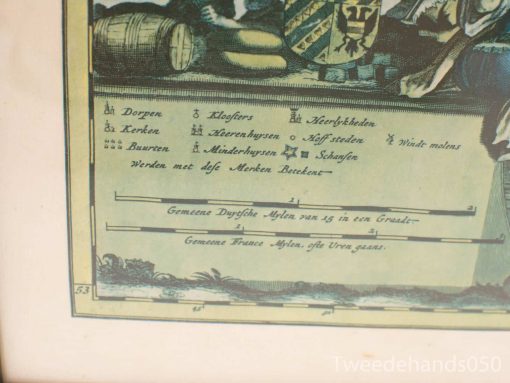 Dorpen Kloosters Heerlykheden
Kerken Heerenhuysen Hoff steden Windt molens
Buurten Minderhuysen Schansen
Werden met dese Merken Betekent
1 2
Gemeene Duytsche Mylen van 15 in een Graadt
1 2
Gemeene France Mylen, ofte Uren gaans.
53
45
Tweedehands050